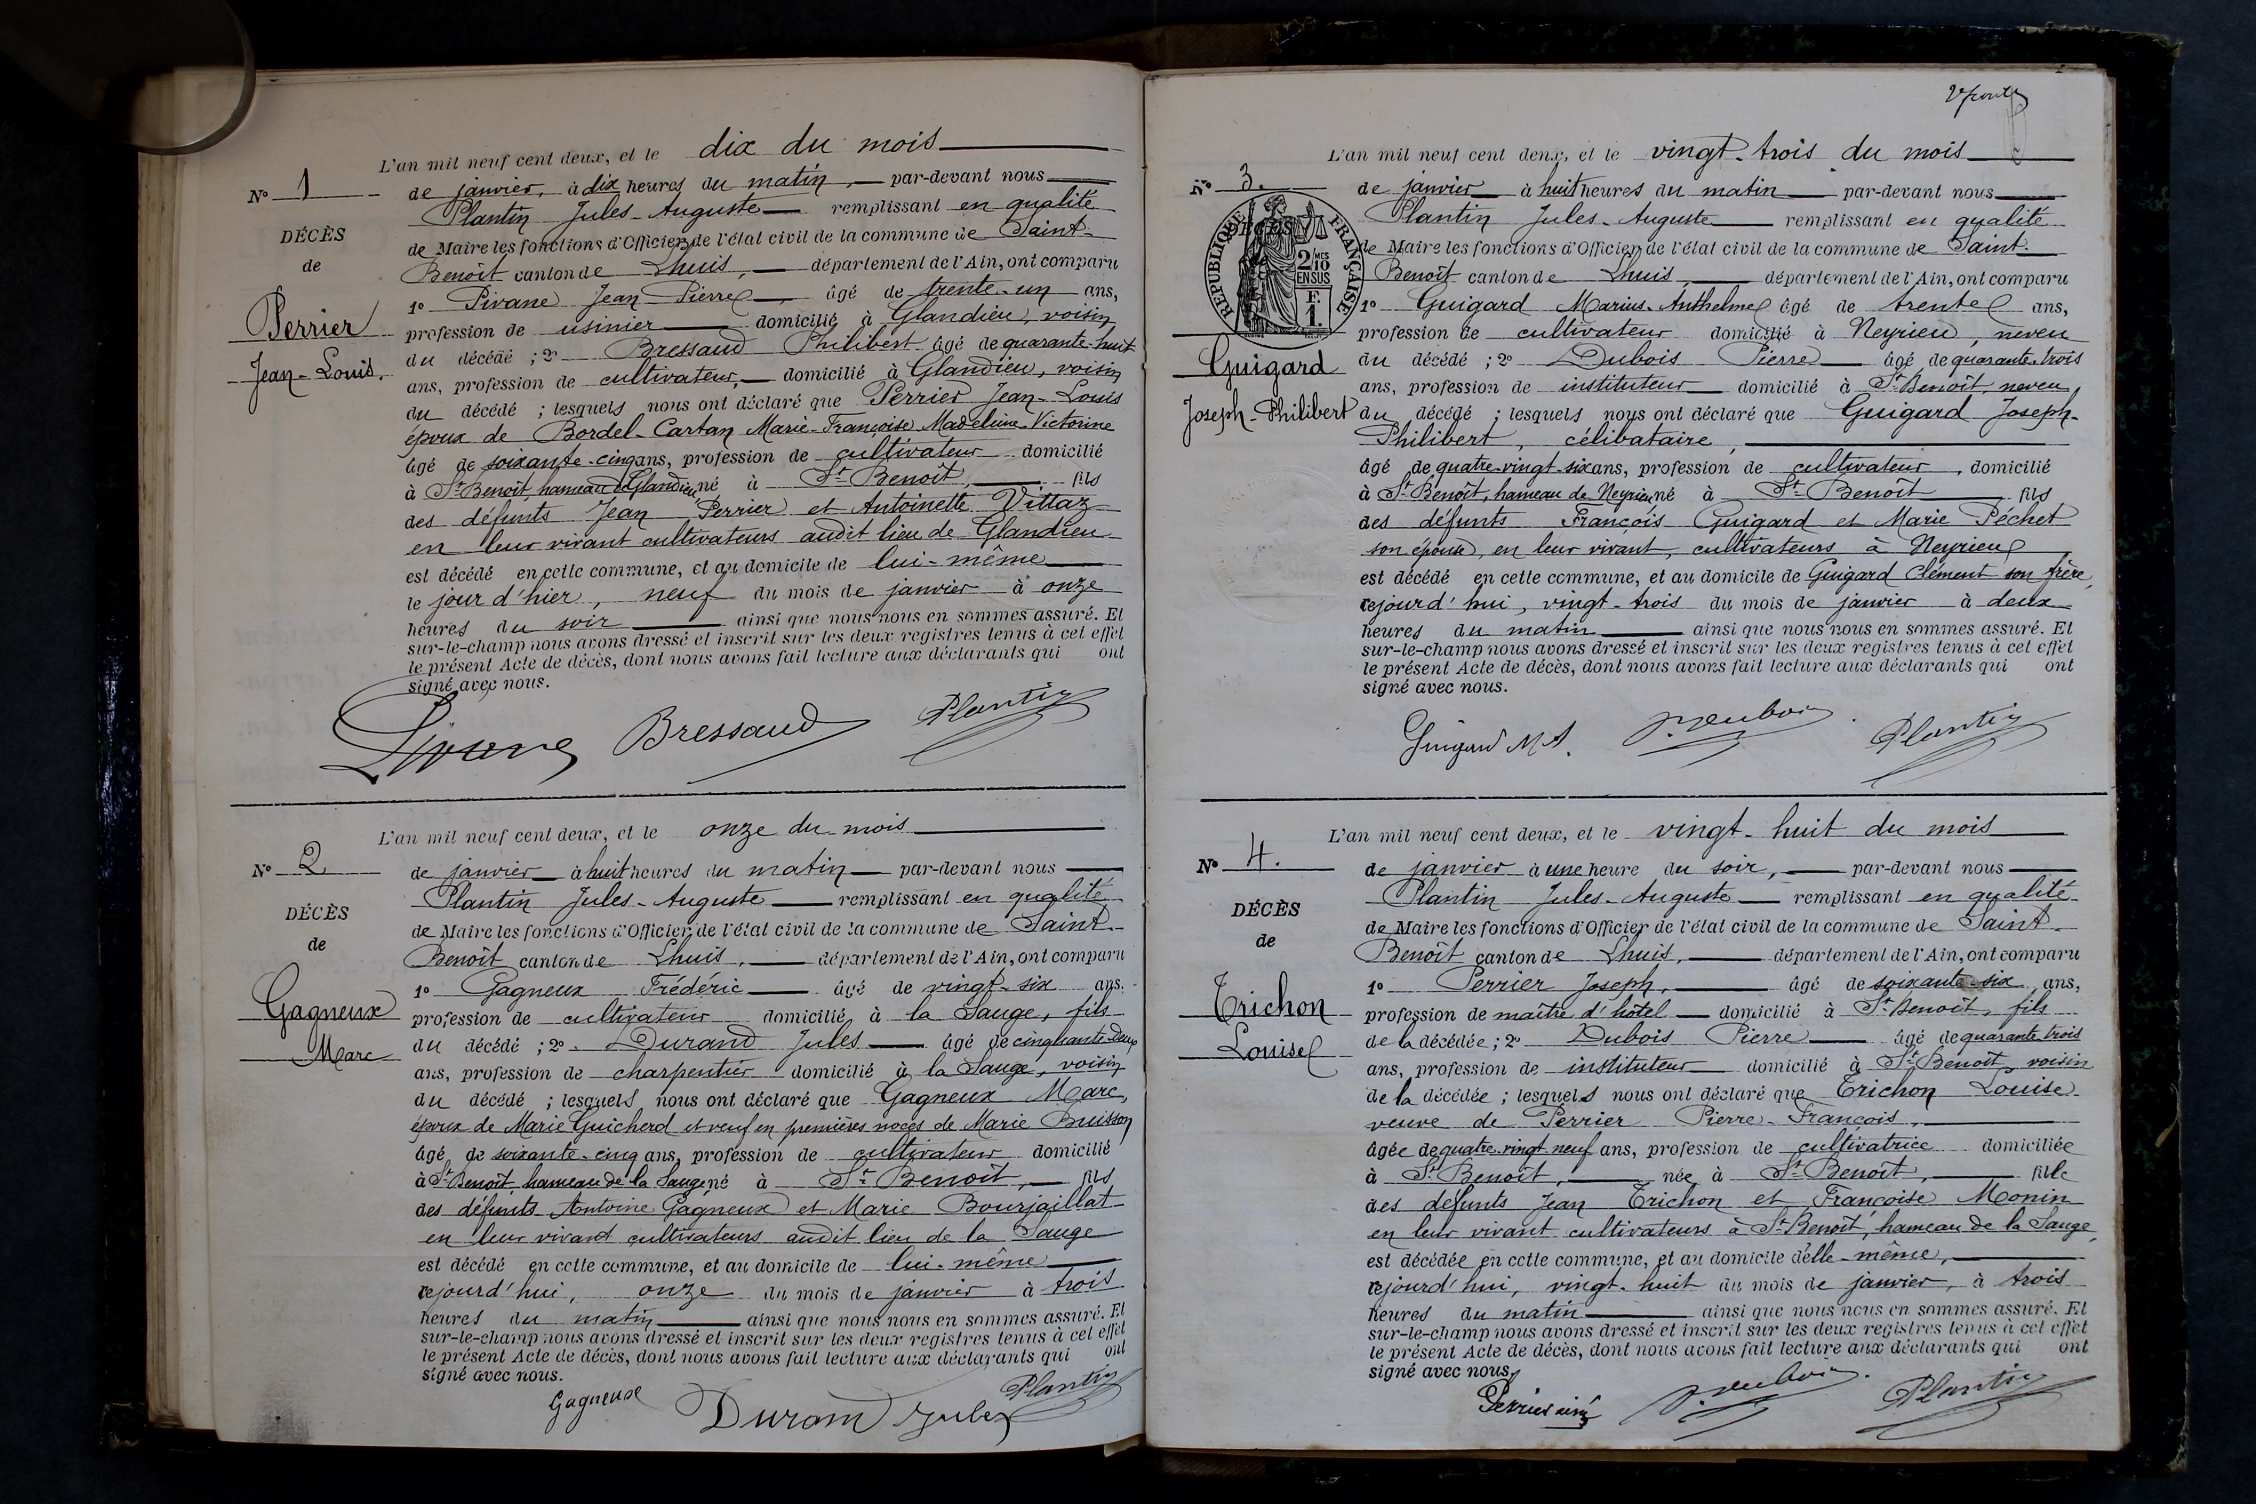 L'an mil neuf cent deux, et le dix du mois
N° 1
de janvier, à dix heures du matin, par-devant nous
Plantin Jules-Auguste remplissant en qualité
DÉCÈS
de Maire les fonctions d'Officier de l'état civil de la commune de Saint-
de
Benoît canton de Lhuis, département de l'Ain, ont comparu
1° Pivane Jean-Pierre, âgé de trente-un ans,
Perrier
profession de usinier domicilié à Glandieu, voisin
du décédé ; 2° Bressaud Philibert âgé de quarante-huit
Jean-Louis.
ans, profession de cultivateur, domicilié à Glandieu, voisin
du décédé ; lesquels nous ont déclaré que Perrier Jean-Louis
époux de Bordel-Cartan Marie-Françoise Madeleine-Victorine
âgé de soixante-cinq ans, profession de cultivateur domicilié
à St Benoît, hameau de Glandieu, né à St Benoît, fils
des défunts Jean Perrier et Antoinette Vittaz
en leur vivant cultivateurs audit lieu de Glandieu
est décédé en cette commune, et au domicile de lui-même
le jour d'hier, neuf du mois de janvier à onze
heures du soir ainsi que nous nous en sommes assuré. Et
sur-le-champ nous avons dressé et inscrit sur les deux registres tenus à cet effet
le présent Acte de décès, dont nous avons fait lecture aux déclarants qui ont
signé avec nous.
Pivane Bressaud Plantin
L'an mil neuf cent deux, et le onze du mois
N° 2
de janvier à huit heures du matin par-devant nous
Plantin Jules-Auguste remplissant en qualité
DÉCÈS
de Maire les fonctions d'Officier de l'état civil de la commune de Saint-
de
Benoît canton de Lhuis, département de l'Ain, ont comparu
1° Gagneux Frédéric âgé de vingt-six ans,
Gagneux
profession de cultivateur domicilié à la Sauge, fils
du décédé ; 2° Durand Jules âgé de cinquante-deux
Marc
ans, profession de charpentier domicilié à la Sauge, voisin
du décédé ; lesquels nous ont déclaré que Gagneux Marc,
époux de Marie Guicherd et veuf en premières noces de Marie Buisson
âgé de soixante-cinq ans, profession de cultivateur domicilié
à St Benoît hameau de la Sauge né à St Benoît, fils
des défunts Antoine Gagneux et Marie Bourjaillat
en leur vivant cultivateurs audit lieu de la Sauge
est décédé en cette commune, et au domicile de lui-même
cejourd'hui, onze du mois de janvier à trois
heures du matin ainsi que nous nous en sommes assuré. Et
sur-le-champ nous avons dressé et inscrit sur les deux registres tenus à cet effet
le présent Acte de décès, dont nous avons fait lecture aux déclarants qui ont
signé avec nous.
Gagneux Durand Jules Plantin
L'an mil neuf cent deux, et le vingt-trois du mois
N° 3.
de janvier à huit heures du matin par-devant nous
Plantin Jules-Auguste remplissant en qualité
DÉCÈS
RÉPUBLIQUE FRANÇAISE
2 MES
10
EN SUS
F.
1
de Maire les fonctions d'Officier de l'état civil de la commune de Saint-
Benoît canton de Lhuis, département de l'Ain, ont comparu
1° Guigard Marius-Anthelme âgé de trente ans,
profession de cultivateur domicilié à Neyrieu, neveu
Guigard
du décédé ; 2° Dubois Pierre âgé de quarante-trois
ans, profession de instituteur domicilié à St Benoît, neveu
Joseph-Philibert
du décédé ; lesquels nous ont déclaré que Guigard Joseph-
Philibert, célibataire,
âgé de quatre-vingt-six ans, profession de cultivateur, domicilié
à St Benoît, hameau de Neyrieu, né à St Benoît fils
des défunts François Guigard et Marie Péchet
son épouse, en leur vivant, cultivateurs à Neyrieu
est décédé en cette commune, et au domicile de Guigard Clément son frère,
cejourd'hui, vingt-trois du mois de janvier à deux
heures du matin ainsi que nous nous en sommes assuré. Et
sur-le-champ nous avons dressé et inscrit sur les deux registres tenus à cet effet
le présent Acte de décès, dont nous avons fait lecture aux déclarants qui ont
signé avec nous.
Guigard M A. P. Dubois Plantin
L'an mil neuf cent deux, et le vingt-huit du mois
N° 4.
de janvier à une heure du soir, par-devant nous
Plantin Jules-Auguste remplissant en qualité
DÉCÈS
de Maire les fonctions d'Officier de l'état civil de la commune de Saint-
de
Benoît canton de Lhuis, département de l'Ain, ont comparu
1° Perrier Joseph, âgé de soixante-six ans,
Trichon
profession de maître d'hôtel domicilié à St Benoît, fils
de la décédée ; 2° Dubois Pierre âgé de quarante trois
Louise
ans, profession de instituteur domicilié à St Benoît voisin
de la décédée ; lesquels nous ont déclaré que Trichon Louise
veuve de Perrier Pierre-François,
âgée de quatre-vingt neuf ans, profession de cultivatrice domiciliée
à St Benoît, née à St Benoît, fille
des défunts Jean Trichon et Françoise Monin
en leur vivant cultivateurs à St Benoît, hameau de la Sauge,
est décédée en cette commune, et au domicile d'elle-même,
cejourd'hui, vingt-huit du mois de janvier, à trois
heures du matin ainsi que nous nous en sommes assuré. Et
sur-le-champ nous avons dressé et inscrit sur les deux registres tenus à cet effet
le présent Acte de décès, dont nous avons fait lecture aux déclarants qui ont
signé avec nous,
Perrier ainé P. Dubois Plantin